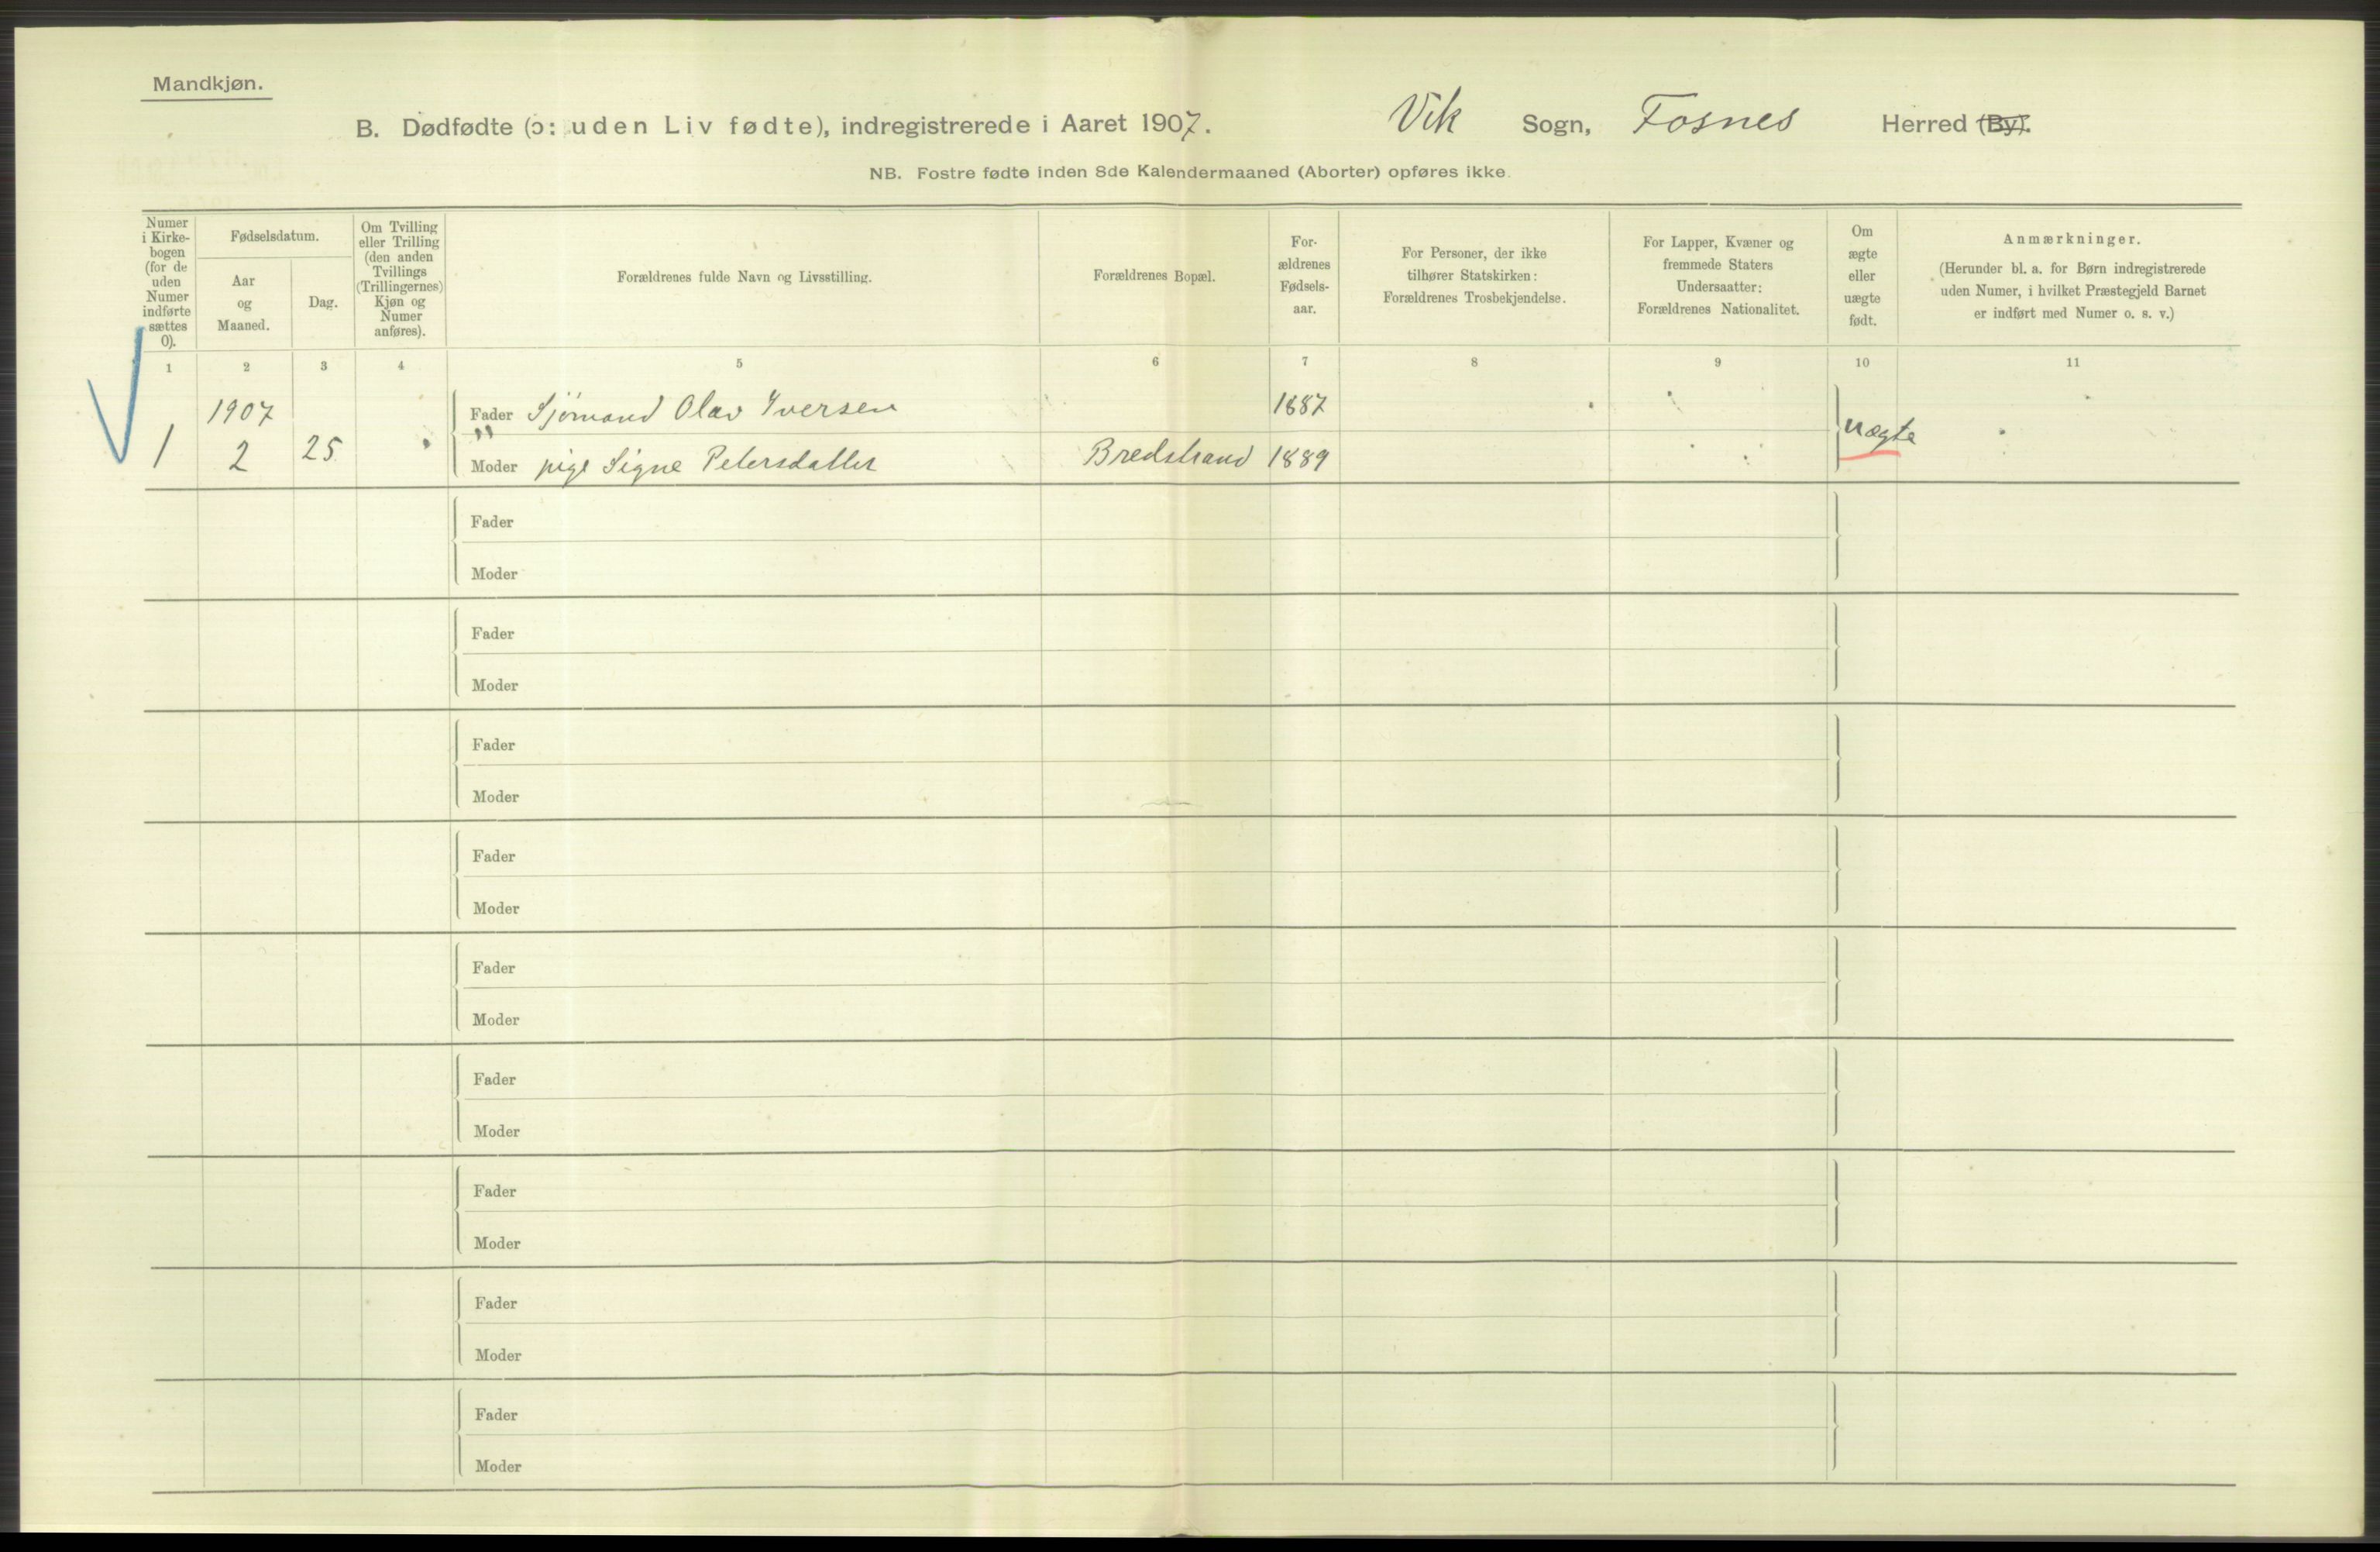 Mandkjøn.
B. Dødfødte (ɔ: uden Liv fødte), indregistrerede i Aaret 1907. Vik Sogn, Fosnes Herred (By).
NB. Fostre fødte inden 8de Kalendermaaned (Aborter) opføres ikke.
Numer
i Kirke-
bogen
(for de
uden
Numer
indførte
sættes
0).
Fødselsdatum.
Aar
og
Maaned.
Dag.
Om Tvilling
eller Trilling
(den anden
Tvillings
(Trillingernes)
Kjøn og
Numer
anføres).
Forældrenes fulde Navn og Livsstilling.
Forældrenes Bopæl.
For-
ældrenes
Fødsels-
aar.
For Personer, der ikke
tilhører Statskirken:
Forældrenes Trosbekjendelse.
For Lapper, Kvæner og
fremmede Staters
Undersaatter:
Forældrenes Nationalitet.
Om
ægte
eller
uægte
født.
Anmærkninger.
(Herunder bl. a. for Børn indregistrerede
uden Numer, i hvilket Præstegjeld Barnet
er indført med Numer o. s. v.)
1 2 3 4 5 6 7 8 9 10 11
1907 Fader Sjömand Olav Iversen 1887
1 2 25 " Moder pige Signe Petersdatter Bredstrand 1889 uægte
Fader
Moder
Fader
Moder
Fader
Moder
Fader
Moder
Fader
Moder
Fader
Moder
Fader
Moder
Fader
Moder
Fader
Moder